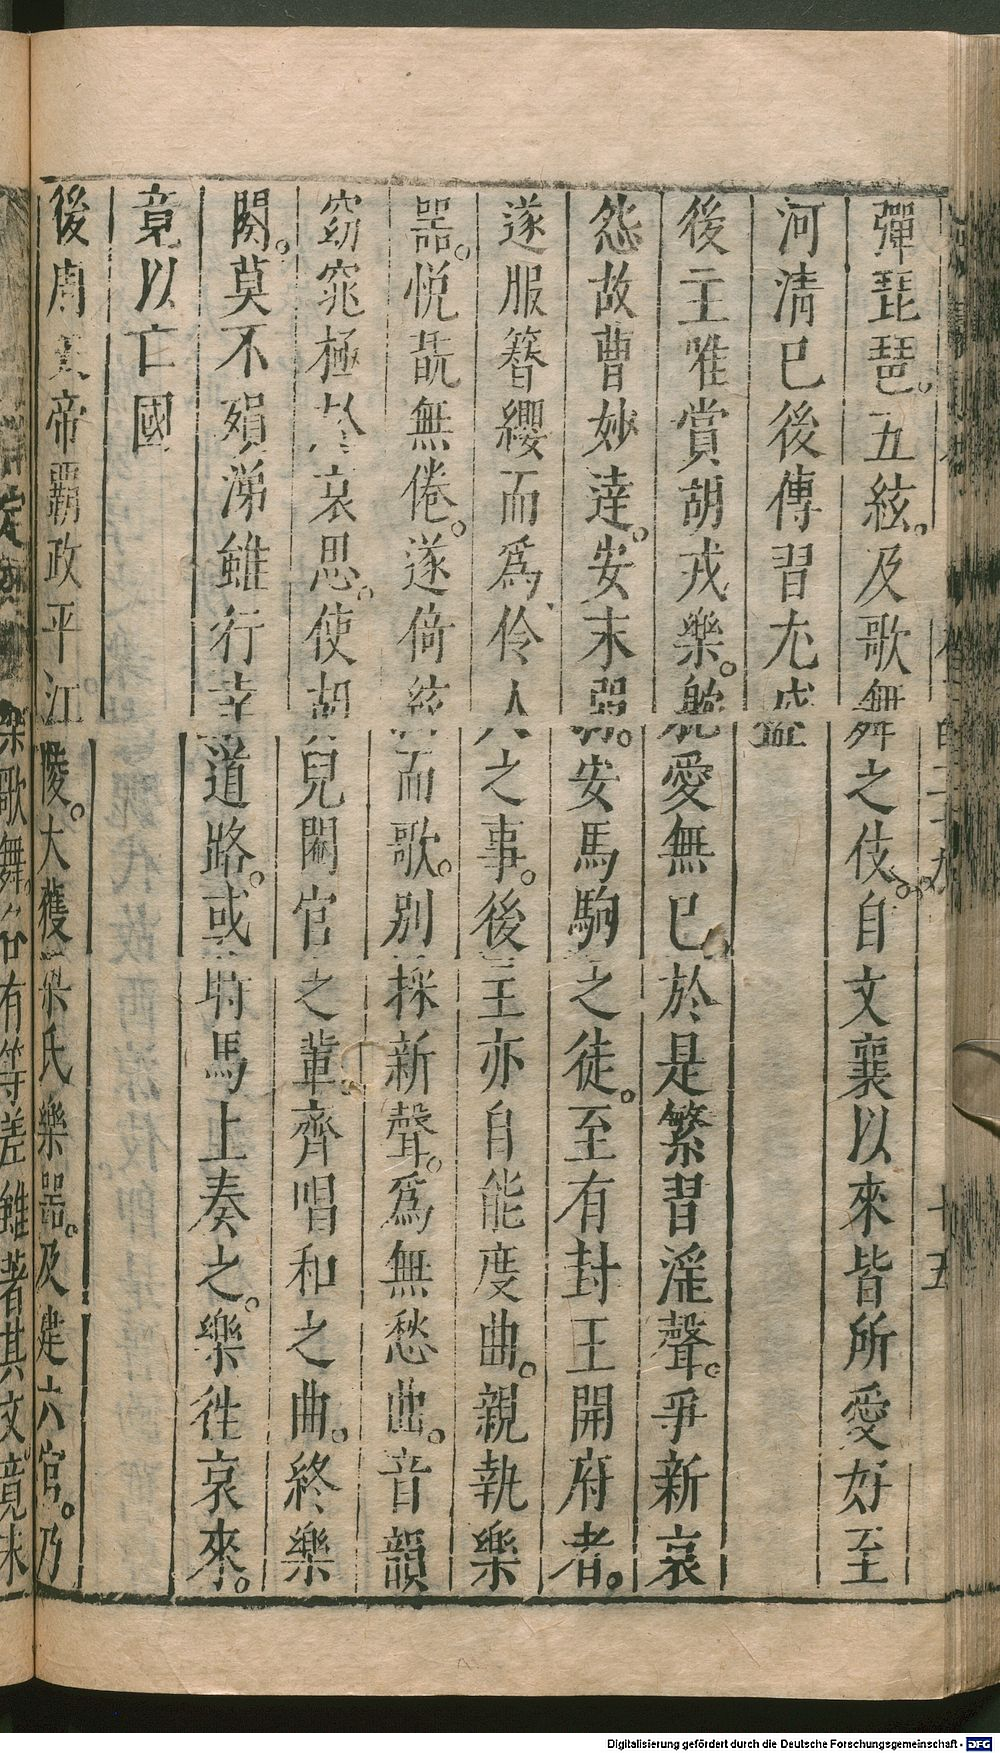 彈琵琶。五絃。及歌舞之伎。自文襄以來皆所愛好至
河清已後傳習尤盛
後主唯賞胡戎樂。躭愛無已。於是繁習淫聲。爭新哀
怨故曹妙達。安末弱。安馬駒之徒。至有封王開府者。
遂服簮纓而爲伶人之事。後主亦自能度曲。親執樂
器。悅翫無倦。遂倚絃而歌。別採新聲。爲無愁曲。音韻
窈窕極於哀思。使胡兒閹官之輩。齊唱和之曲。終樂
闋。莫不殞涕雖行幸道路。或時馬上奏之。樂徃哀來。
竟以亡國
後周文帝霸政平江陵。大獲梁氏樂器。及建六官。乃
樂歌舞。各有等差雖著其文。竟未
十五
Digitalisierung gefördert durch die Deutsche Forschungsgemeinschaft - DFG